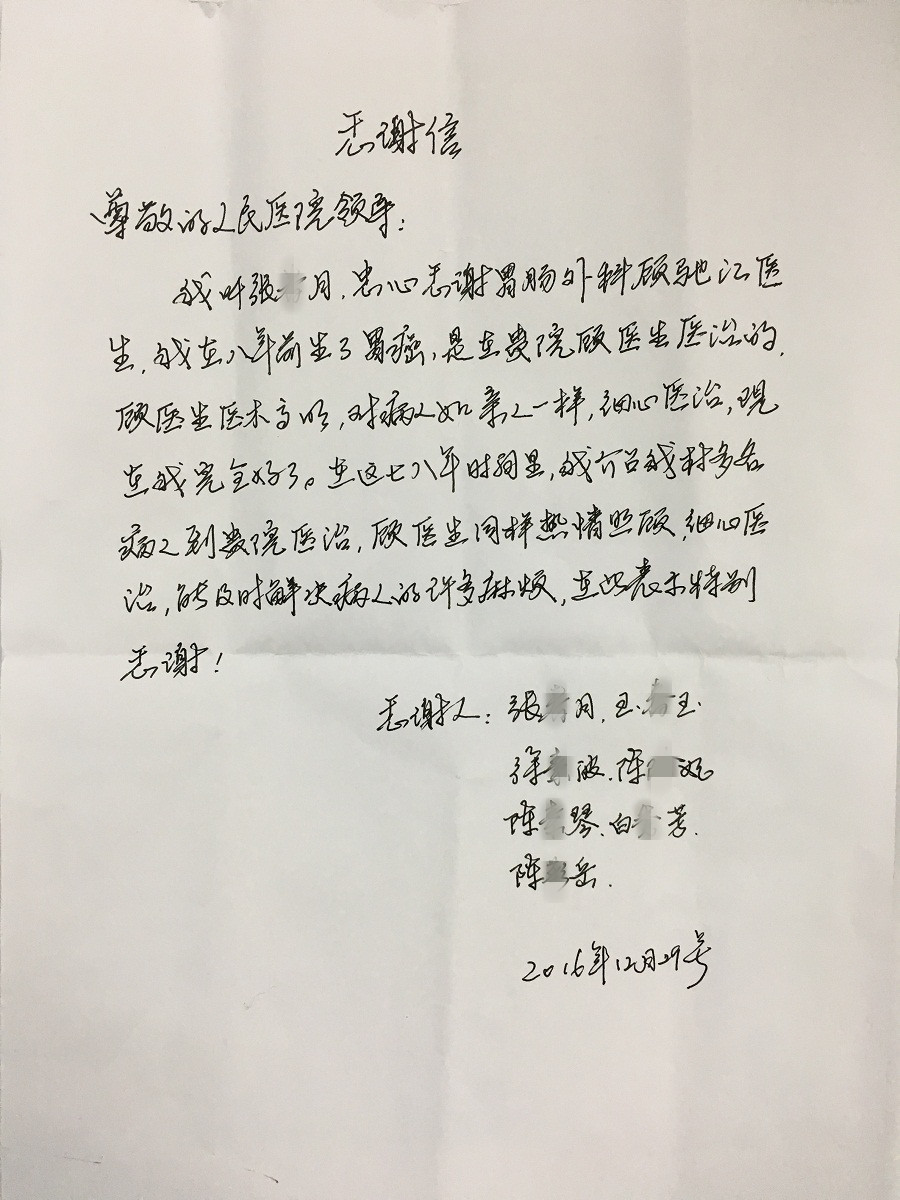 感谢信
尊敬的人民医院领导：
我叫张月，忠心感谢胃肠外科顾驰江医
生，我在八年前生了胃癌，是在贵院顾医生医治的，
顾医生医术高明，对病人如亲人一样，细心医治，现
在我完全好了。在这七八年时间里，我介绍我村多名
病人到贵院医治，顾医生同样热情照顾，细心医
治，能及时解决病人的许多麻烦，在此表示特别
感谢！
感谢人：张月，王玉.
徐波.陈妃
陈琴.白芳.
陈岳.
2016年12月29号